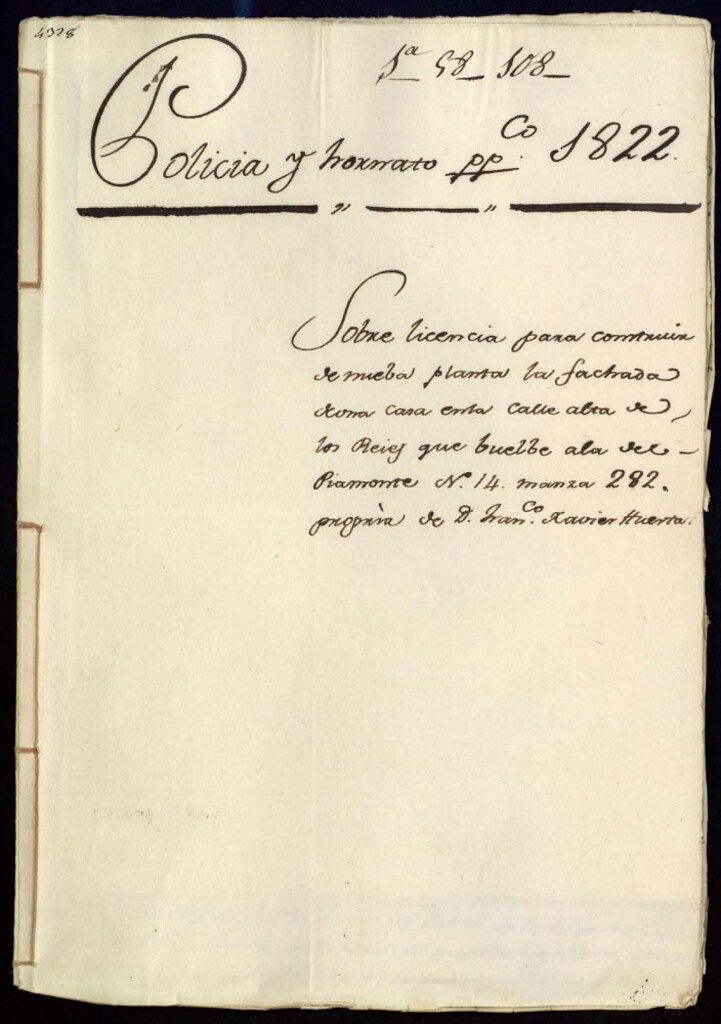 4328
1ª 58 108
Policia y hornato pp.Co 1822.
Sobre licencia para construir
de nueba planta la fachada
de una casa en la Calle alta de
los Reies que buelbe a la del
Piamonte N. 14. manza 282.
propria de D. Fran.Co Xavier Huerta.